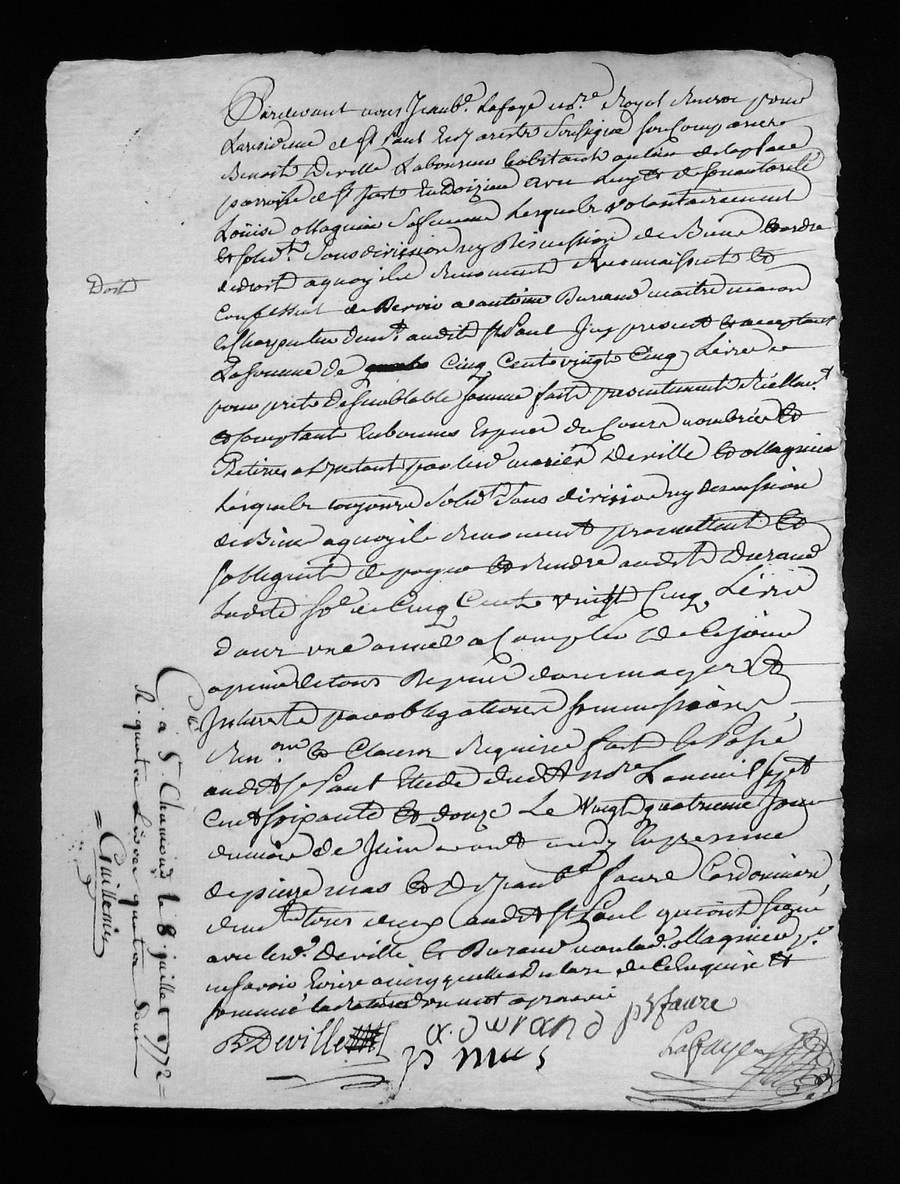 Pardevant nous Jean bte. Lafaye nore. Royal Reservé pour
la residence de St Paul En Jarests Soussigné fut Comparu
Benoist Deville Laboureur habitant au lieu de la place
parroisse de St just En Doizieu avec Luy et de son authorité
Loüise Magnien Sa femme Lesquels volontairement
et solidt. Sans division ny Discussion de Biens et ordre
de droit a quoy ils Renoncent Reconnaissent et
Confessent de Devoir a antoine Durand maitre macon
et Charpentier demt. audit St Paul Icy present et acceptant
La somme de Cinq Cents vingt Cinq Livres
pour prêts de semblable somme fait presentement Réellemt.
et Comptant En bonnes Especes du Cours nombrées et
Retirées a l'instant par lesd. mariés Deville et Magnien
Lesquels toujours Solidt. Sans division ny discussion
de Biens a quoy ils Renoncent promettent et
s'obligent de payer et Rendre audit Durand
Ladite so.e de Cinq Cents vingt Cinq Livres
dans une année a Compter de Ce jour
a peine de tous Depens dommages et
Interets par obligations soummissions
Renon. et Clauses Requises fait et Passé
audit St Paul Etude dudit nore. L'an mil sept
Cent soixante et douze Le vingt quatrieme Jour
du mois de Juin avant midy En presence
de pierre mas et de Jean bte. faure Cordonniers
demt. tous deux audit St Paul qui ont signé
avec lesd. Deville et Durand non lad. Magnien pr.
ne savoir Ecrire ainsy qu'elle a declaré de Ce Enquise et
sommée
B Deville a. durand jb faure
p mas Lafaye
Dost
C.lé à St. Chamond le 8. juillet 1772 =
R. quatre Livres quatre sous
= Guillemin =